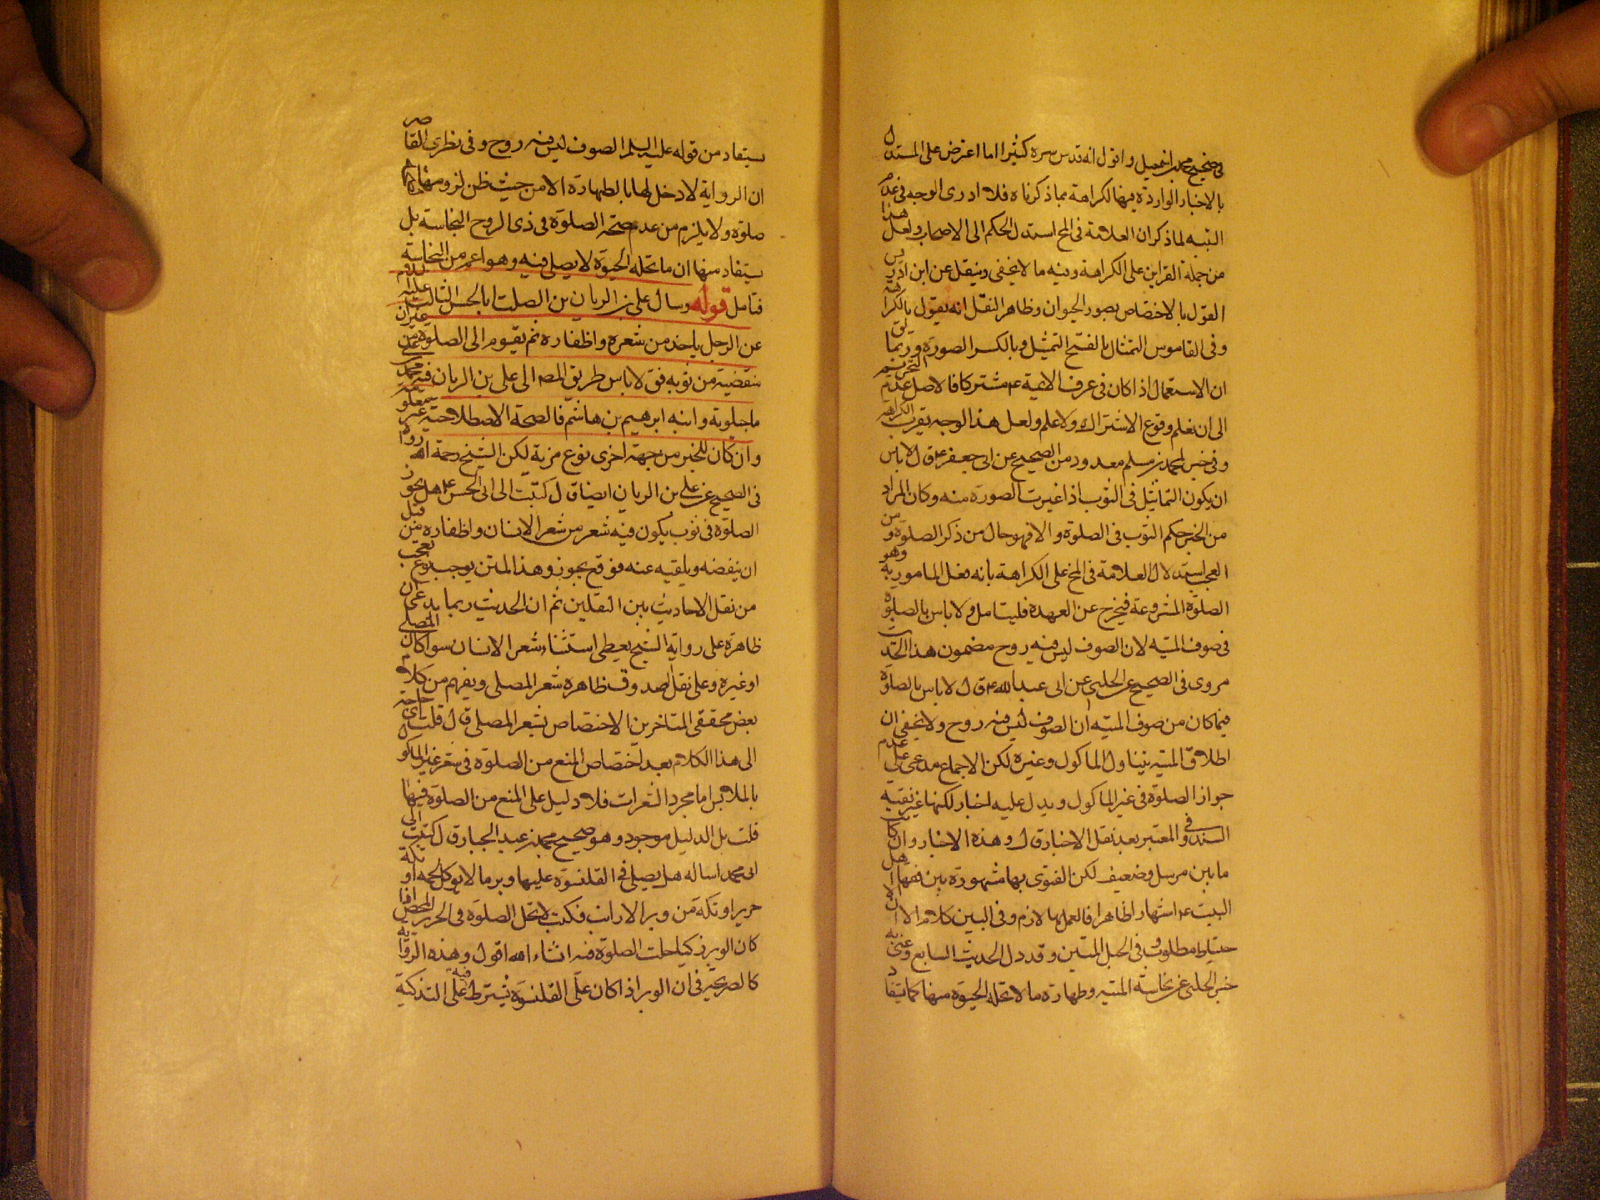 في صحيح محمد بن اسمعيل واقول انه قدس سره كثيرا اما اعترض على المستدل
بالاخبار الواردة فيها الكراهة بما ذكرناه فلا ادرى الوجه في عدم
التنبه لما ذكر ان العلامة في المخ استدل الحكم الى الاصحاب ولعل هذا
من جملة القراين على الكراهة وفيه ما لا يخفى وينقل عن ابن ادريس
القول بالاختصاص بصور الحيوان وظاهر النقل انه يقول بالكراهة
وفي القاموس التمثال بالفتح التمثيل وبالكسر الصورة وربما
ان الاستعمال اذا كان في عرف الائمة ع مشتركا فالاصل عدم التحريم
الى ان نعلم وقوع الاشتراك ولا علم ولعل هذا الوجه يقرب الكراهة
وفي خبر لمحمد بن مسلم معدود من الصحيح عن ابي جعفر ع ق ل لا باس
ان يكون التماثيل في الثوب اذا غيرت الصورة منه وكان المراد
من الخبر حكم الثوب في الصلوة والا فهو خال من ذكر الصلوة ومن
العجب استدلال العلامة في المخ على الكراهة بانه فعل المامور به وهو
الصلوة المشروعة فيخرج عن العهدة فليتامل ولا باس بالصلوة
في صوف الميتة لان الصوف ليس فيه روح مضمون هذا الحديث
مروى في الصحيح عن الحلبي عن ابي عبد الله ع ق ل لا باس بالصلوة
فيما كان من صوف الميتة ان الصوف ليس فيه روح ولا يخفى ان
اطلاق الميتة يتناول الماكول وغيره لكن الاجماع مدعى على عدم
جواز الصلوة في غير الماكول ويدل عليه اخبار لكنها غير نقية
السند وفي المعتبر بعد نقل الاخبار ق ل وهذه الاخبار وان كان
ما بين مرسل وضعيف لكن الفتوى بها مشهورة بين فقهاء اهل
البيت ع اشتهارا ظاهرا فالعمل بها لازم وفي البين كلام الا ان الا
حتياط مطلوب وفي الحبل المتين وقد دل الحديث السابع وعنى به
خبر الحلبي عن نجاسة الميتة وطهارة ما لا تحله الحيوة منها كما يتفاد
يستفاد من قوله عليه السلم الصوف ليس فيه روح وفي نظرى القاصر
ان الرواية لا دخل لها بالطهارة الا من حيث ظن لزومها
صلوة ولا يلزم من عدم صحة الصلوة في ذى الروح النجاسة بل
يستفاد منها ان ما تحله الحيوة لا يصلى فيه وهو اعم من النجاسة
فتامل قوله وسال على بن الريان بن الصلت ابا الحسن الثالث عليه السلام
عن الرجل ياخذ من شعره واظفاره ثم يقوم الى الصلوة من غير ان
ينفضه من ثوبه فق لا باس طريق المصـ الى على بن الريان فيه محمد بن على
ماجيلويه وابنه ابرهيم بن هاشم فالصحة الاصطلاحية غير معلومة
وان كان للخبر من جهة اخرى نوع مزية لكن الشيخ رحمه الله رواه
في الصحيح عن على بن الريان ايضا ق ل كتبت الى ابى الحسن ع هل يجوز
الصلوة في ثوب يكون فيه شعر من شعر الانسان واظفاره من قبل
ان ينفضه ويلقيه عنه فوقع يجوز وهذا المتن يوجب نوع تعجب
من نقل الاحاديث بين النقلين ثم ان الحديث ربما يدعى ان
ظاهره على رواية الشيخ يعطى استثناء شعر الانسان سواء كان المصلى
او غيره وعلى نقل الصدوق ظاهره شعر المصلى ويفهم من كلام
بعض محققى المتاخرين الاختصاص بشعر المصلى ق ل قلت اى حاجة
الى هذا الكلام بعد اختصاص المنع من الصلوة في شعر غير الماكول
بالملابس اما مجرد الشعرات فلا دليل على المنع من الصلوة فيها
قلت بل الدليل موجود وهو صحيح محمد بن عبد الجبار ق ل كتبت الى
ابى محمد اساله هل يصلى في القلنسوة عليها وبر ما لا يوكل لحمه او تكة
حرير او تكة من وبر الارانب فكتب لا تحل الصلوة في الحرير المحض فان
كان الوبر ذكيا حلت الصلوة فيه انشاء الله اقول وهذه الرواية
كالصريحة في ان الوبر اذا كان على القلنسوة يشترط فيه على التذكية